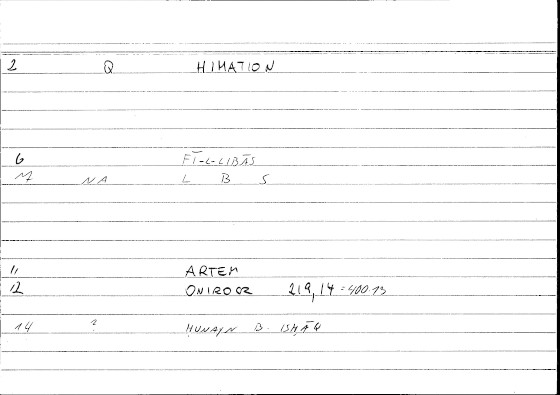 2 Q HIMATION
6 FĪ-L-LIBĀS
M NA L B S
11 ARTEM
12 ONIROCR 219,14 = 400.13
14 ? ḤUNAYN B. ISḤĀQ